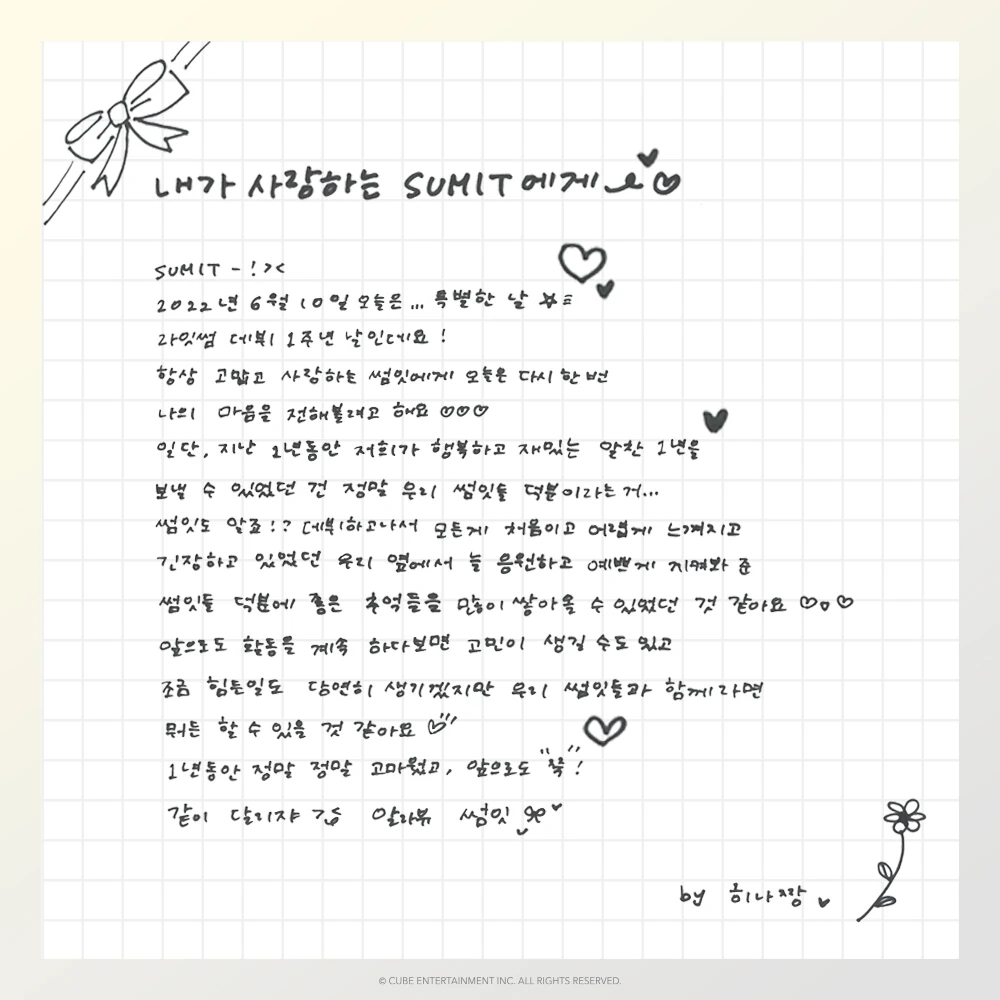 내가 사랑하는 SUMIT에게
SUMIT - ! ><
2022년 6월 10일 오늘은... 특별한 날
라잇썸 데뷔 1주년 날인데요 !
항상 고맙고 사랑하는 썸잇에게 오늘은 다시 한 번
나의 마음을 전해볼려고 해요 ♡♡♡
일단, 지난 1년동안 저희가 행복하고 재밌는 알찬 1년을
보낼 수 있었던 건 정말 우리 썸잇들 덕분이라는거...
썸잇도 알죠!? 데뷔하고나서 모든게 처음이고 어렵게 느껴지고
긴장하고 있었던 우리 옆에서 늘 응원하고 예쁘게 지켜봐 준
썸잇들 덕분에 좋은 추억들을 많이 쌓아올 수 있었던 것 같아요 ♡o♡
앞으로도 활동을 계속 하다보면 고민이 생길 수도 있고
조금 힘든일도 당연히 생기겠지만 우리 썸잇들과 함께라면
뭐든 할 수 있을 것 같아요
1년동안 정말 정말 고마웠고, 앞으로도 "쭉"!
같이 달리쟈 알라뷰 썸잇
by 히나짱
© CUBE ENTERTAINMENT INC. ALL RIGHTS RESERVED.